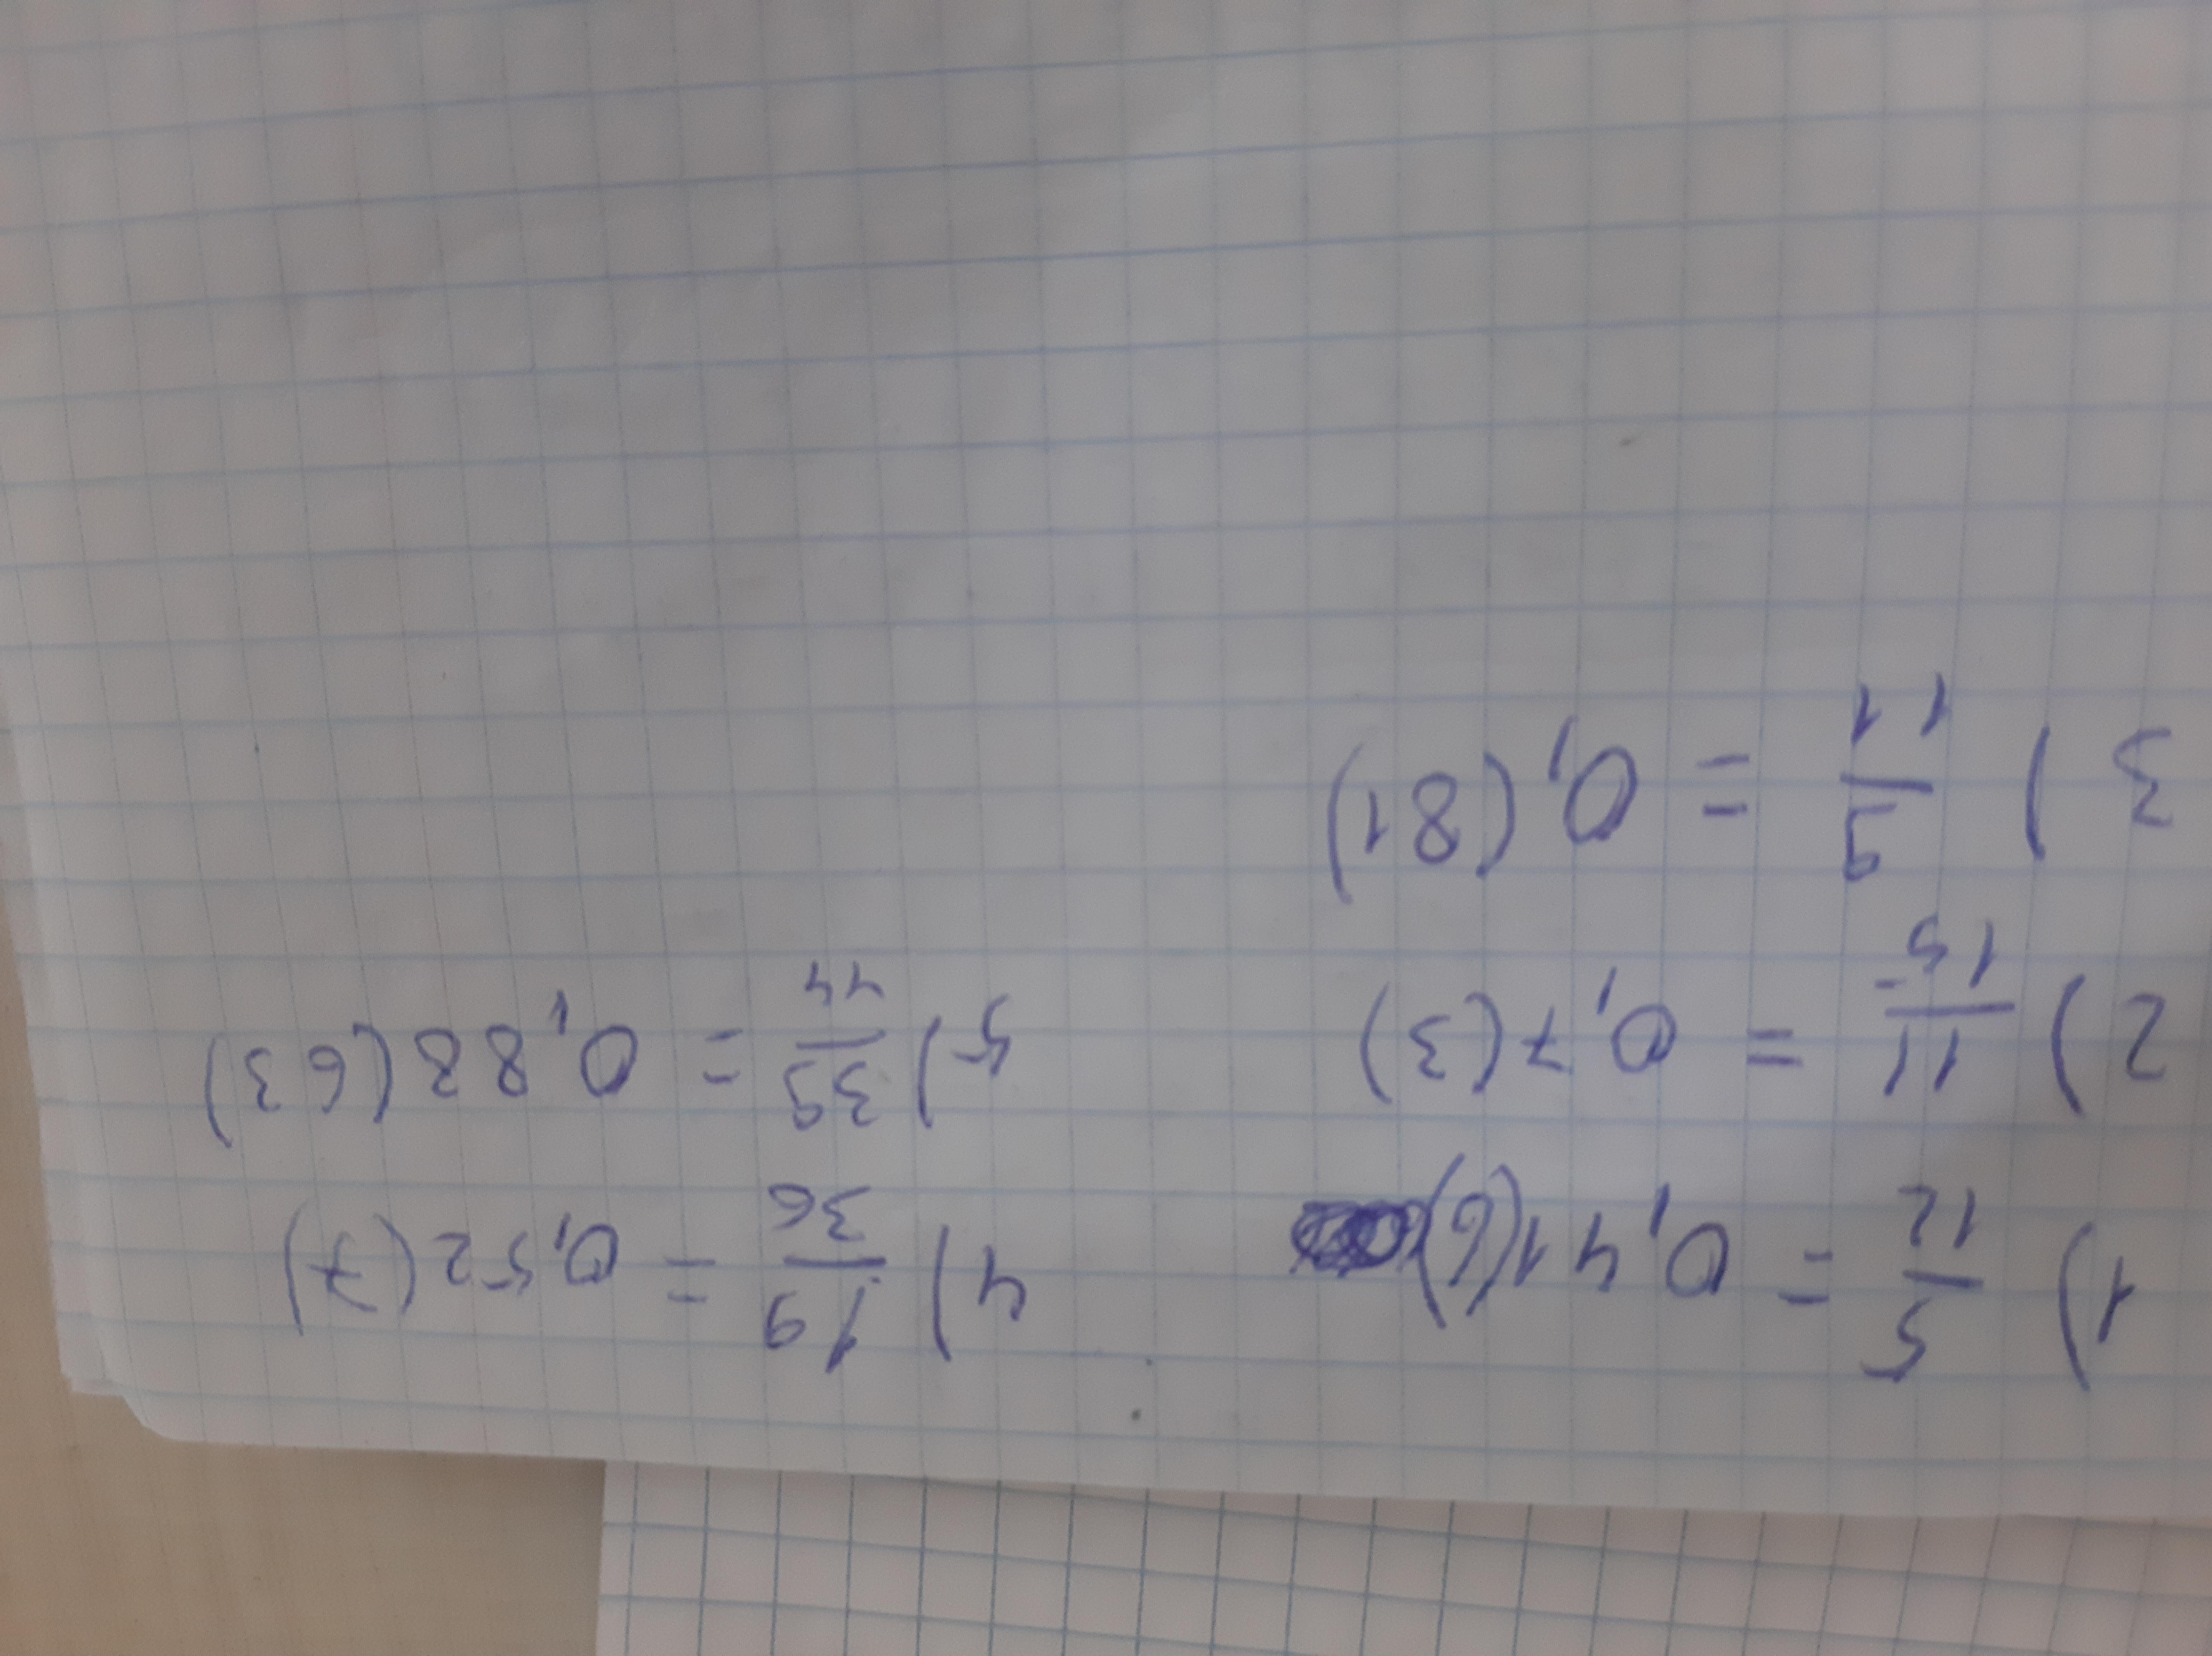 1) 5/12 = 0,41(6)
2) 11/15 = 0,7(3)
3) 9/11 = 0,(81)
4) 19/36 = 0,52(7)
5) 39/44 = 0,88(63)